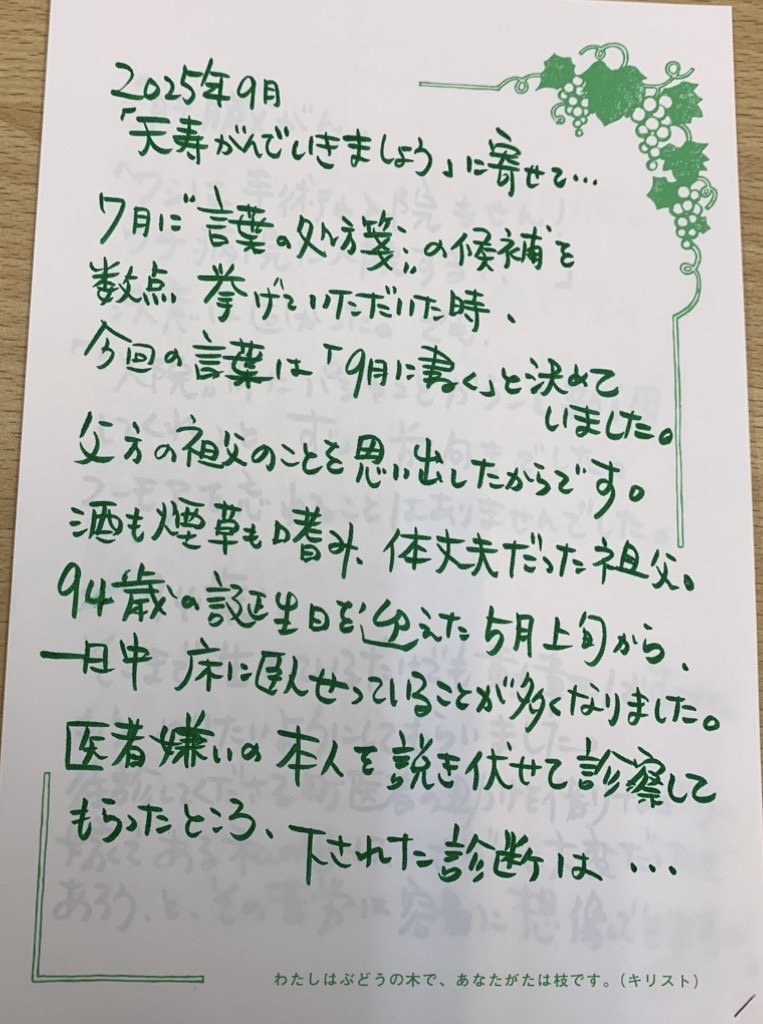 2025年9月
「天寿がんでいきましょう」に寄せて…
7月に〝言葉の処方箋〟の候補を
数点 挙げていただいた時、
今回の言葉は「9月に書く」と決めて
いました。
父方の祖父のことを思い出したからです。
酒も煙草も嗜み、体丈夫だった祖父。
94歳の誕生日を迎えた5月上旬から、
一日中 床に臥せっていることが多くなりました。
医者嫌いの本人を説き伏せて診察して
もらったところ、下された診断は…
わたしはぶどうの木で、あなたがたは枝です。(キリスト)